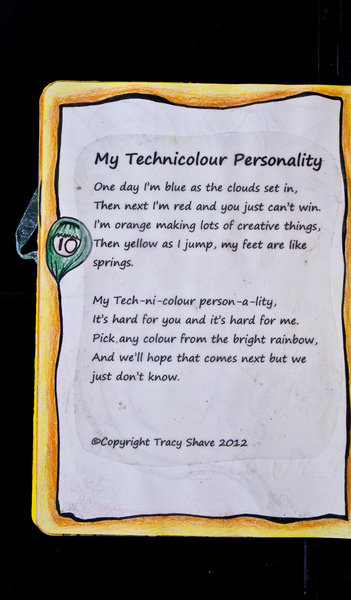 My Technicolour Personality
One day I'm blue as the clouds set in,
Then next I'm red and you just can't win.
I'm orange making lots of creative things,
Then yellow as I jump, my feet are like
springs.
10
My Tech-ni-colour person-a-lity,
It's hard for you and it's hard for me.
Pick any colour from the bright rainbow,
And we'll hope that comes next but we
just don't know.
©Copyright Tracy Shave 2012